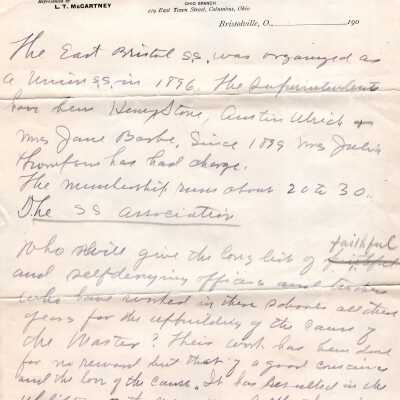 Represented by
L. T. McCARTNEY
OHIO BRANCH
219 East Town Street, Columbus, Ohio
Bristolville, O. 190
The East Bristol S.S. was organized as
a Union S.S. in 1896. The Superintendents
have been Henry Stone, Austin Ulrich +
Mrs Jane Barbe, Since 1899 Mrs Julia
Thompson has had charge.
The membership runs about 20 to 30.
The SS Association
Who will give the long list of faithful
and selfdenying officers and teachers
who have worked in these schools all these
years for the upbuilding of the cause of
the Master? Their work has been done
for no reward but that of a good conscience
and the love of the cause. It has resulted in the